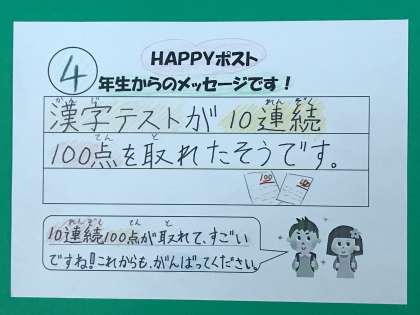 HAPPYポスト
4年生からのメッセージです！
漢字テストが10連続
100点を取れたそうです。
100
10連続100点が取れて、すごい
ですね!これからも、がんばってください。